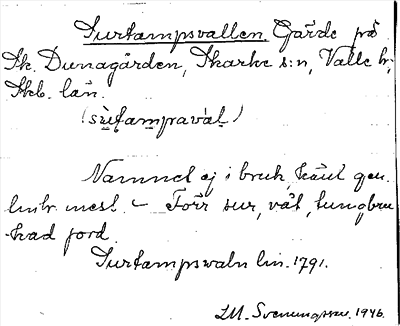 Surtampsvallen. Gärde på
Sk. Dunagården, Skarke s:n, Valle hd,
Skb. län.
(sùṭampravàl)
Namnet ej i bruk, känt gen.
lm hr. mest. – Förr sur, våt, tungbru-
kad jord.
Surtampswaln lm. 1791.
I.M. Svenungsson. 1946.